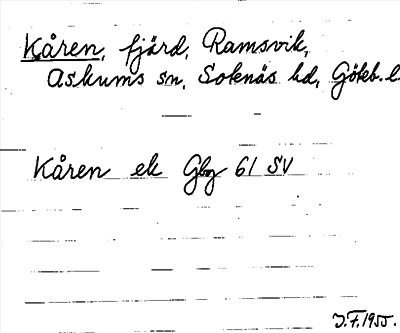 Kåren, fjärd, Ramsvik,
Askums sn, Sotenäs hd, Göteb. l.
Kåren ek Gbg 61 SV
J.F. 1955.